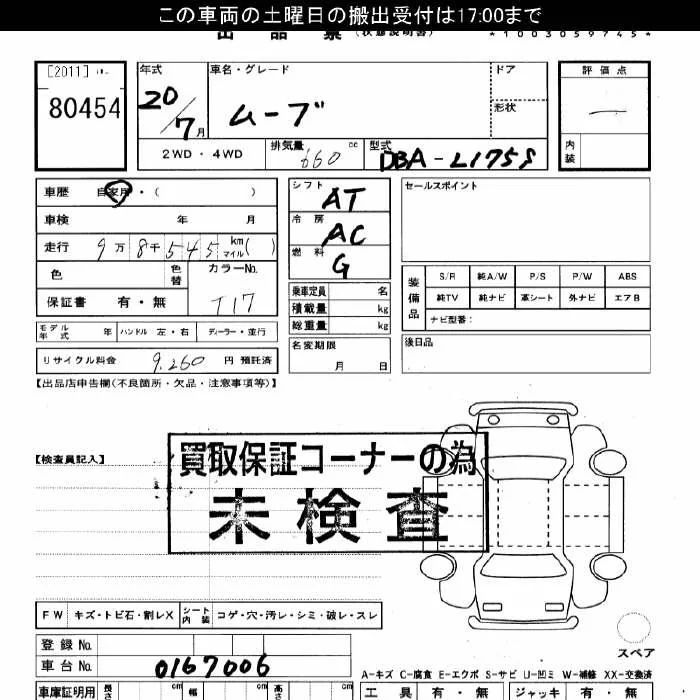 この車両の土曜日の搬出受付は17:00まで
出品票 (状態説明書) *1003059745*
[2011]
80454
年式 20/7月
車名・グレード ムーブ
ドア
形状
評価点
内装
2WD・4WD
排気量 660 cc
型式 DBA-L175S
車歴 自家用・( )
車検 年 月
走行 9万8千545 km マイル( )
色 色替
カラーNo. T17
保証書 有・無
シフト AT
冷房 AC
燃料 G
乗車定員 名
積載量 kg
総重量 kg
名変期限 月 日
セールスポイント
装備品
S/R 純A/W P/S P/W ABS
純TV 純ナビ 革シート 外ナビ エアB
ナビ型番:
後日品
モデル年式 年 ハンドル 左・右 ディーラー・並行
リサイクル料金 9,260 円 預託済
【出品店申告欄(不良箇所・欠品・注意事項等)】
【検査員記入】
買取保証コーナーの為
未検査
FW キズ・トビ石・割レX シート内装 コゲ・穴・汚レ・シミ・破レ・スレ
登録No.
車台No. 0167006
スペア
A-キズ C-腐食 E-エクボ S-サビ U-凹ミ W-補修 XX-交換済
車庫証明用 長さ cm 幅 cm 高さ cm
工具 有・無 ジャッキ 有・無